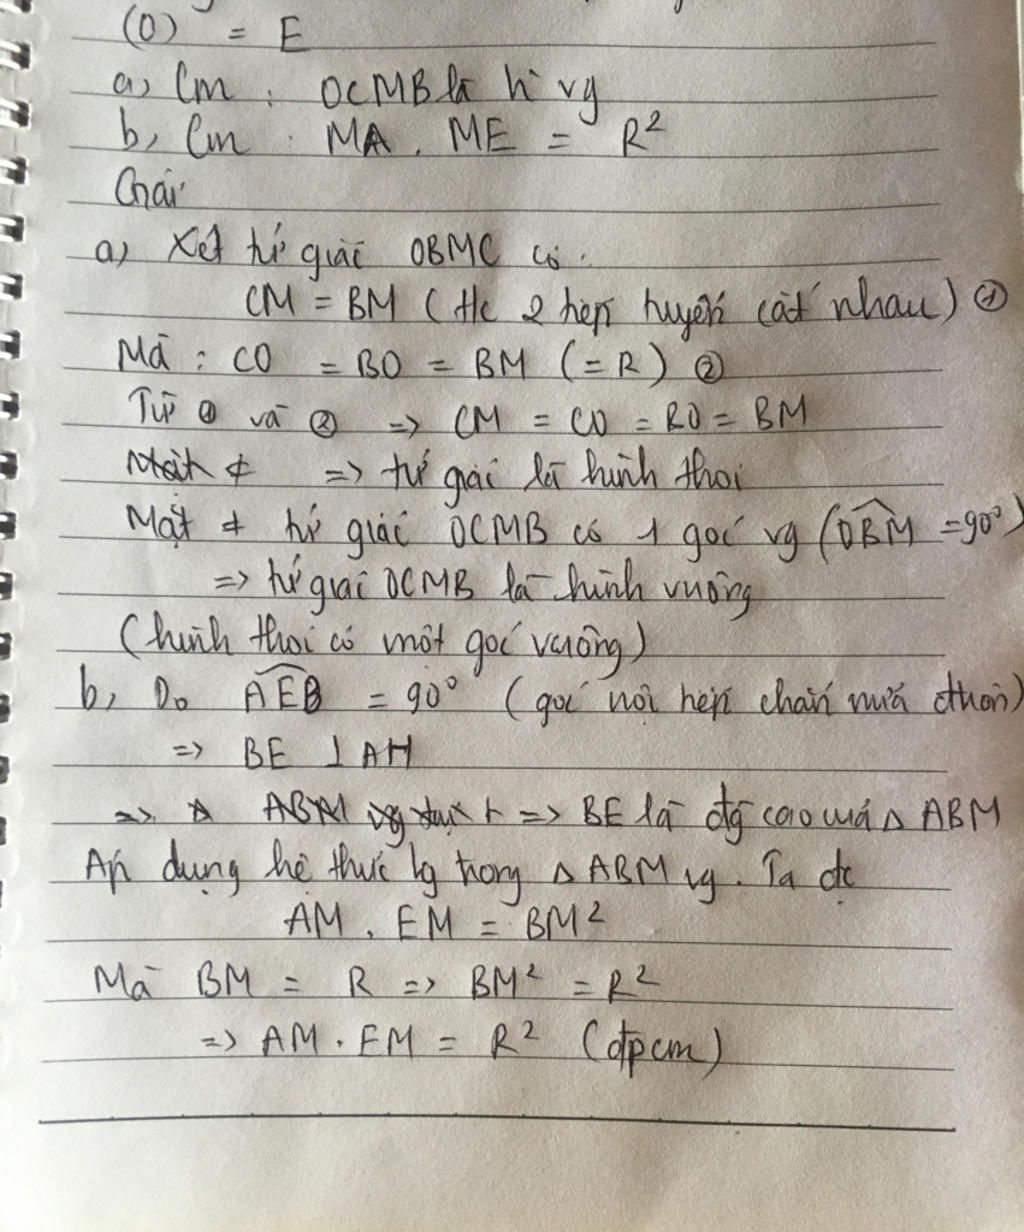 (O) = E
a, Cm : OCMB là h vg
b, Cm : MA . ME = R²
Giải
a) Xét tứ giác OBMC có :
CM = BM (t/c 2 tiếp tuyến cắt nhau) ①
Mà : CO = BO = BM (= R) ②
Từ ① và ② => CM = CO = BO = BM
=> tứ giác là hình thoi
Mặt ≠ tứ giác OCMB có 1 góc vg (OBM = 90°)
=> tứ giác OCMB là hình vuông
(hình thoi có một góc vuông)
b, Do AEB = 90° (góc nội tiếp chắn nửa đtròn)
=> BE ⊥ AM
=> Δ ABM vg => BE là đg cao của Δ ABM
Áp dụng hệ thức lg trong Δ ABM vg. Ta đc
AM . EM = BM²
Mà BM = R => BM² = R²
=> AM . EM = R² (đpcm)